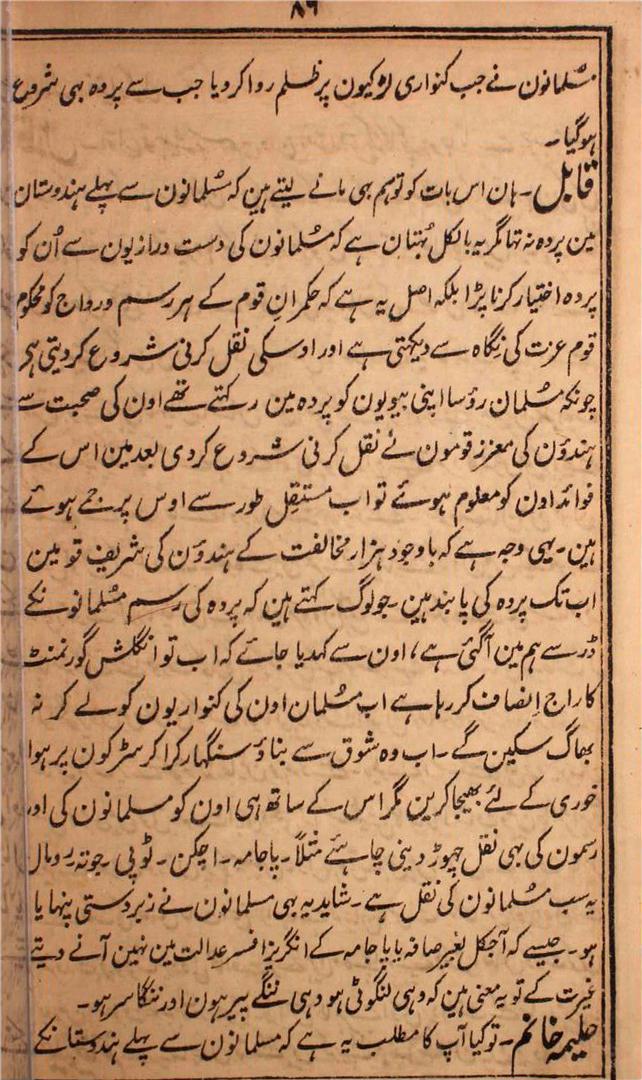 ۸۶
مسلمانون نے جب کنواری لڑکیون پر ظلم روا کر دیا جب سے پردہ بھی شروع
ہوگیا۔
قابل۔ ہان اس بات کو تو ہم بھی مانے لیتے ہین کہ مسلمانون سے پہلے ہندوستان
مین پردہ نہ تھا مگر یہ بالکل بُہتان ہے کہ مسلمانون کی دست درازیون سے اُن کو
پردہ اختیار کرنا پڑا بلکہ اصل یہ ہے کہ حکمرانِ قوم کے ہر رسم و رواج کو محکوم
قوم عزت کی نگاہ سے دیکہتی ہے اور اوسکی نقل کرنی شروع کر دیتی ہی
چونکہ مسلمان رؤسا اپنی بیبیون کو پردہ مین رکہتے تھے اون کی صحبت سے
ہندؤن کی معزز قومون نے نقل کرنی شروع کر دی بعد مین اس کے
فوائد اون کو معلوم ہوئے تو اب مستقِل طور سے اوس پر جمے ہوئے
ہین۔ یہی وجہ ہے کہ باوجود ہزار مخالفت کے ہندؤن کی شریف قومین
اب تک پردہ کی پابند ہین۔ جو لوگ کہتے ہین کہ پردہ کی رسم مسلمانونکے
ڈر سے ہم مین آگئی ہے، اون سے کہدیا جائے کہ اب تو انگلش گورنمنٹ
کا راج اِنصاف کر رہا ہے اب مسلمان اون کی کنواریون کو لے کر نہ
بھاگ سکین گے۔ اب وہ شوق سے بناؤ سنگہار کرا کر سڑکون پر ہوا
خوری کے لئے بھیجا کرین مگر اس کے ساتھ ہی اون کو مسلمانون کی اور
رسمون کی بھی نقل چہوڑ دینی چاہئے مثلاً۔ پاجامہ۔ اچکن۔ ٹوپی۔ جوتہ رومال
یہ سب مسلمانون کی نقل ہے۔ شاید یہ بھی مسلمانون نے زبردستی پنہایا
ہو۔ جیسے کہ آجکل بغیر صافہ یا پاجامہ کے انگریز افسر عدالت مین نہین آنے دیتے
غیرت کے تو یہ معنی ہین کہ وہی لنگوٹی ہو وہی ننگے پیر ہون اور ننگا سر ہو۔
حلیمہ خانم۔ تو کیا آپ کا مطلب یہ ہے کہ مسلمانون سے پہلے ہندوستانکے